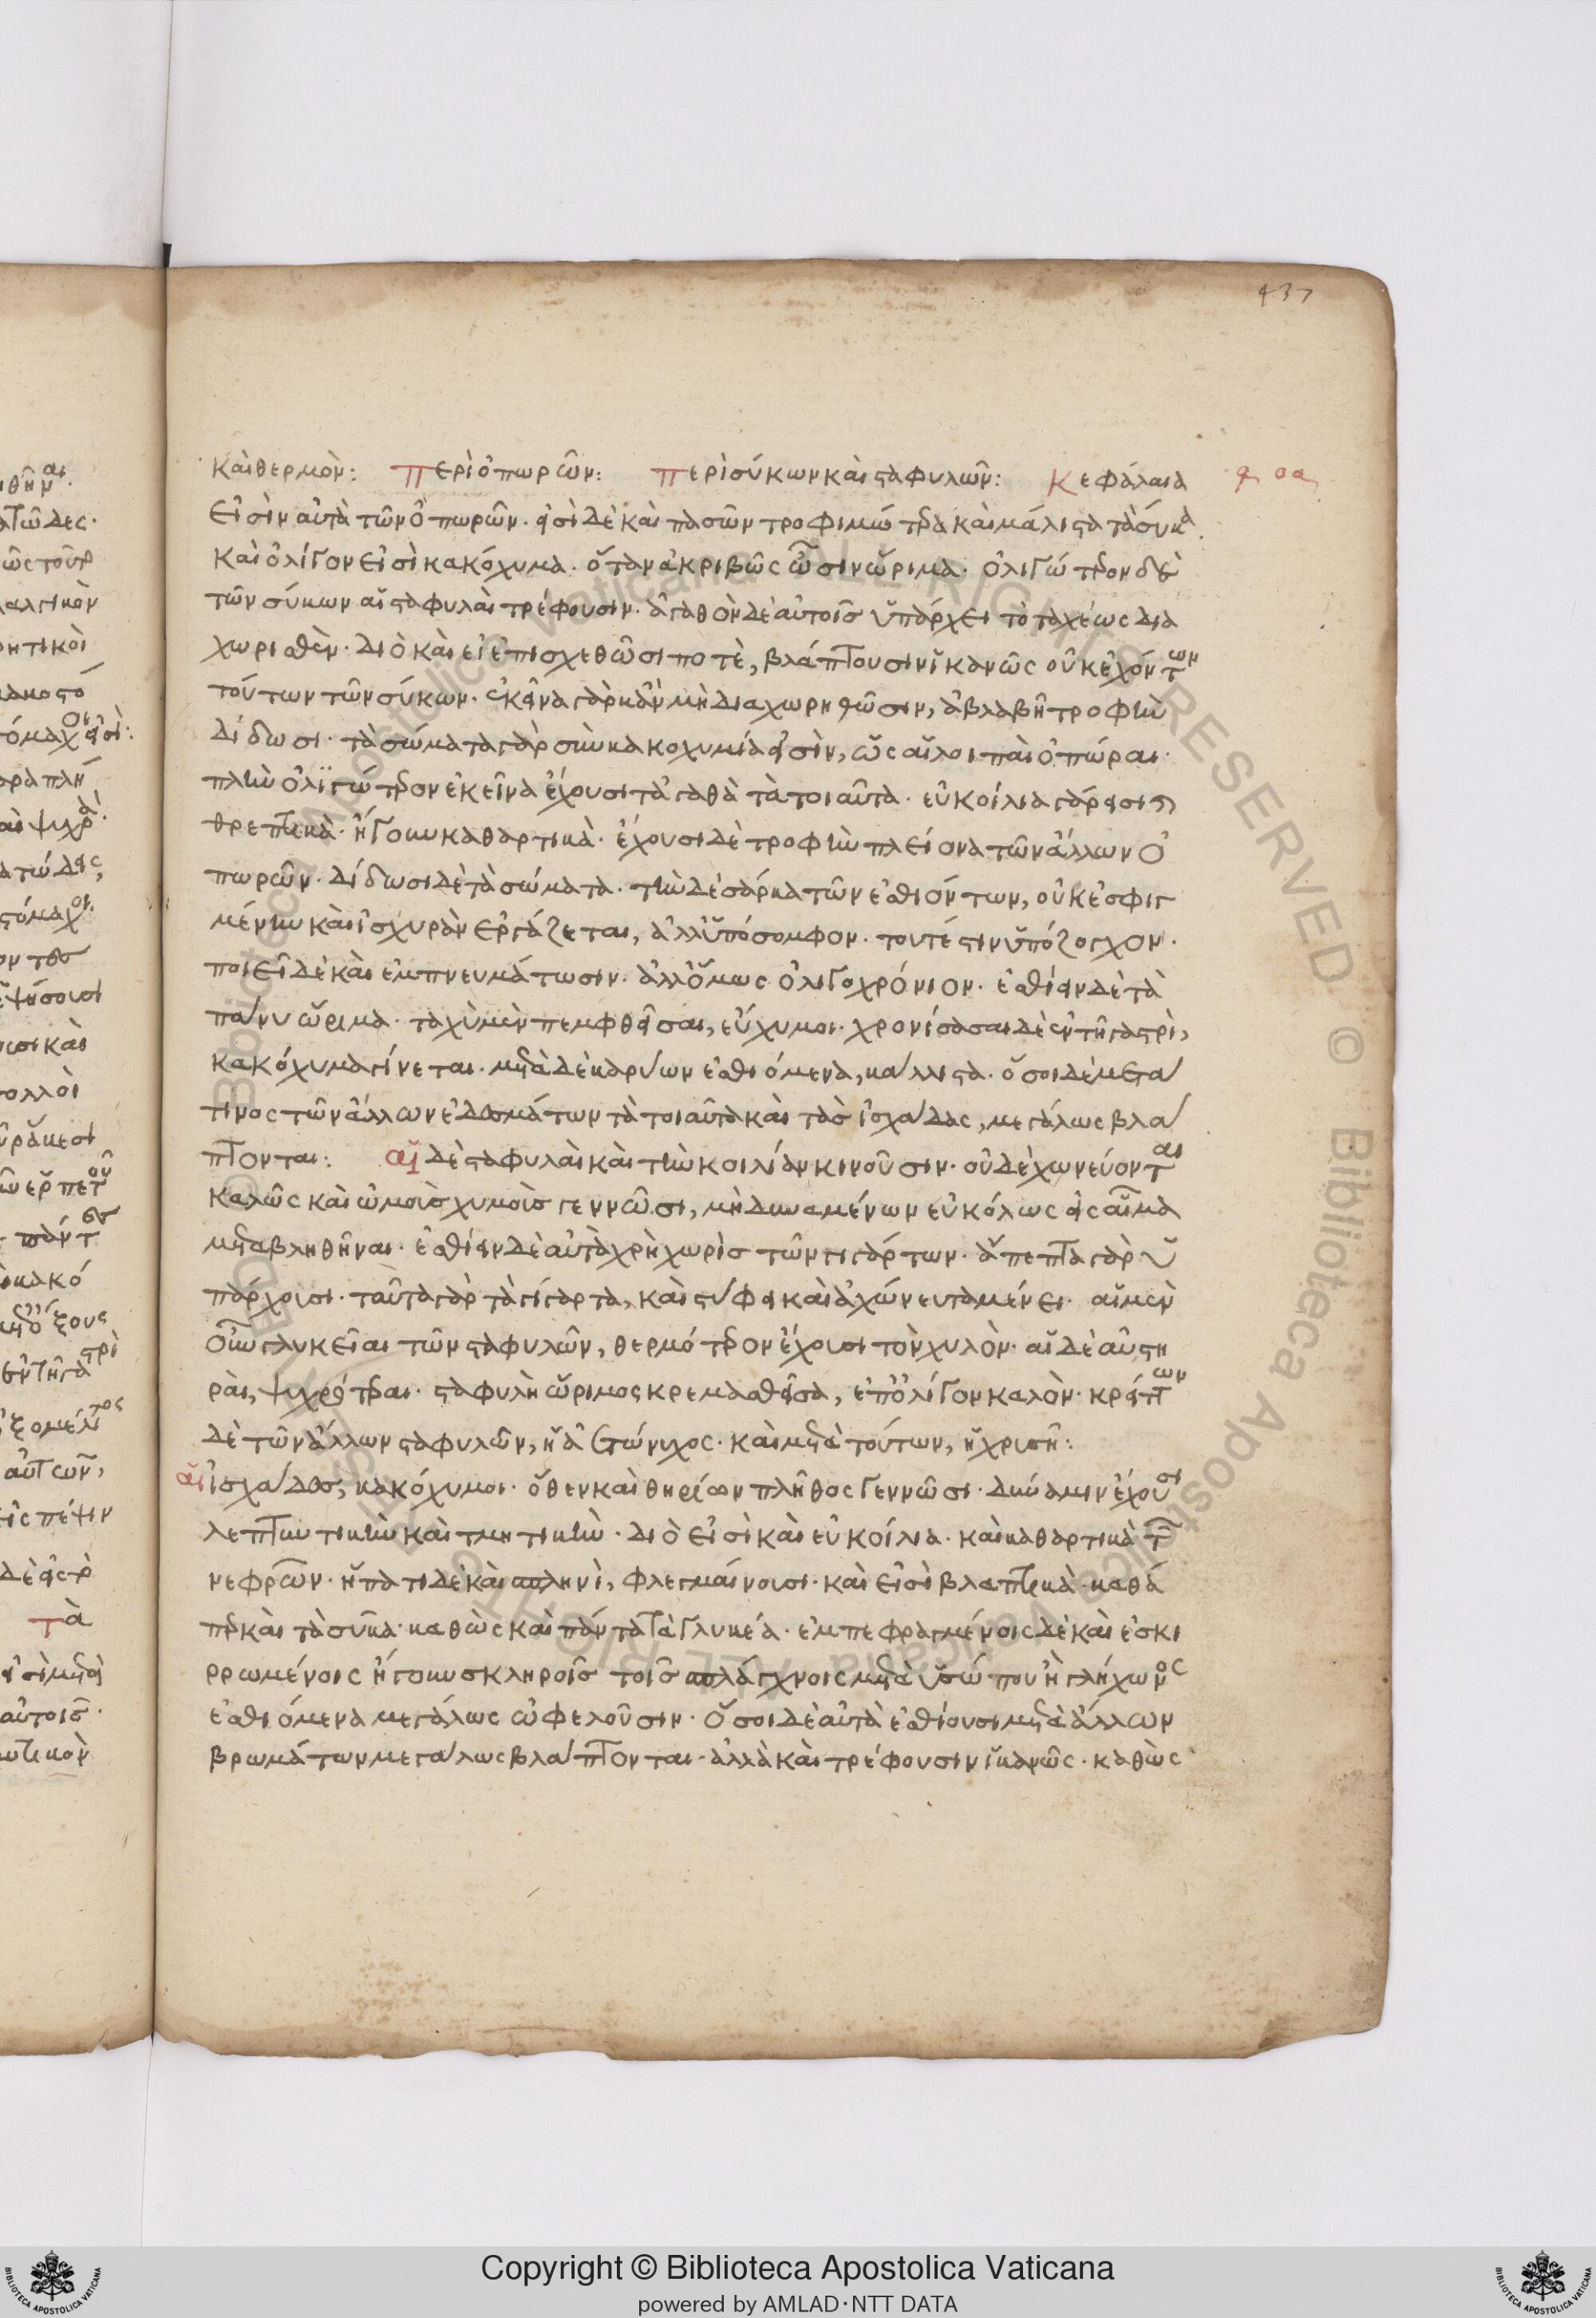 437
καὶ θερμὸν: Περὶ ὀπωρῶν: Περὶ σύκων καὶ σταφυλῶν: Κεφάλαια
Εἰσὶν αὐτὰ τῶν ὀπωρῶν· εἰσὶ δὲ καὶ πασῶν τροφιμώτερα καὶ μάλιστα τὰ σύκα.
Καὶ ὀλίγον εἰσὶ κακόχυμα· ὅταν ἀκριβῶς ὦσιν ὥριμα· ὀλιγώτερον δὲ
τῶν σύκων αἱ σταφυλαὶ τρέφουσιν· ἀγαθὸν δὲ αὐτοῖς ὑπάρχει τὸ ταχέως δια
χωρισθὲν· διὸ καὶ εἰ ἐπισχεθῶσι ποτὲ, βλάπτουσιν ἱκανῶς οὐκ ἐχόντων
τούτων τῶν σύκων· ἐκεῖνα γὰρ κἂν μὴ διαχωρηθῶσιν, ἀβλαβῆ τροφὴν
δίδωσι· τὰ σώματα γὰρ σὺν κακοχυμία εἰσὶν, ὡς αἱ λοιπαὶ ὀπώραι·
πλὴν ὀλιγώτερον ἐκεῖνα ἔχουσι τἀγαθὰ τὰ τοιαῦτα· εὐκοίλια γάρ εἰσι καὶ
θρεπτικὰ· ἤγουν καθαρτικὰ· ἔχουσι δὲ τροφὴν πλείονα τῶν ἄλλων ὀ
πωρῶν· δίδωσι δὲ τὰ σώματα· τὴν δὲ σάρκα τῶν ἐσθιόντων, οὐκ ἐσφιγ
μένην καὶ ἰσχυρὰν ἐργάζεται, ἀλλ' ὑπόσομφον· τουτέστιν ὑπόζοχον·
ποιεῖ δὲ καὶ ἐμπνευμάτωσιν· ἀλλ' ὅμως ὀλιγοχρόνιον· ἐσθίειν δὲ τὰ
πάνυ ὥριμα· ταχὺ μὲν πεμφθεῖσαι, εὔχυμοι· χρονίσασαι δὲ ἐν τῆ γαστρὶ,
κακόχυμα γίνεται· μετὰ δὲ καρύων ἐσθιόμενα, κάλλιστα· ὅσοι δὲ μετά
τινος τῶν ἄλλων ἐδεσμάτων τὰ τοιαῦτα καὶ τὰς ἰσχάδας, μεγάλως βλά
πτονται: αἱ δὲ σταφυλαὶ καὶ τὴν κοιλίαν κινοῦσιν· οὐδὲ χωνεύονται
καλῶς καὶ ὠμοὶς χυμοὶς γεννῶσι, μὴ δυναμένων εὐκόλως εἰς αἷμα
μεταβληθῆναι· ἐσθίειν δὲ αὐτὰ χρὴ χωρὶς τῶν γιγάρτων· ἄπεπτα γὰρ ὑ
πάρχουσι· ταῦτα γὰρ τὰ γίγαρτα, καὶ στύφει καὶ ἀχώνευτα μένει· αἱ μὲν
οὖν γλυκεῖαι τῶν σταφυλῶν, θερμότερον ἔχουσι τὸν χυλὸν· αἱ δὲ αὐστη
ραὶ, ψυχρότεραι· σταφυλὴ ὥριμος κρεμασθεῖσα, ἐπ' ὀλίγον καλὸν· κρείττων
δὲ τῶν ἄλλων σταφυλῶν, ἡ ἀετώνυχος· καὶ μετὰ τούτων, ἡ χρυσῆ:
αἱ ἰσχάδες, κακόχυμοι· ὅθεν καὶ θηρίων πλῆθος γεννῶσι· δύναμιν ἔχουσι
λεπτυντικὴν καὶ τμητικὴν· διὸ εἰσὶ καὶ εὐκοίλια· καὶ καθαρτικὰ τῶν
νεφρῶν· ἥπατι δὲ καὶ σπληνὶ, φλεγμαίνουσι· καὶ εἰσὶ βλαπτικὰ· καθά
περ καὶ τὰ σῦκα· καθὼς καὶ πάντα τὰ γλυκέα· ἐμπεφραγμένοις δὲ καὶ ἐσκι
ρρωμένοις ἤγουν σκληροῖς τοῖς σπλάγχνοις μετὰ ὑσώπου ἢ γλήχωνος
ἐσθιόμενα μεγάλως ὠφελοῦσιν· ὅσοι δὲ αὐτὰ ἐσθίουσι μετὰ ἄλλων
βρωμάτων μεγάλως βλάπτονται· ἀλλὰ καὶ τρέφουσιν ἱκανῶς· καθὼς
Copyright © Biblioteca Apostolica Vaticana
powered by AMLAD·NTT DATA